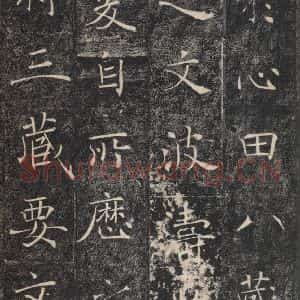 心田八藏
之文波濤
爰自所歷
將三藏要文
Shufawang.CN